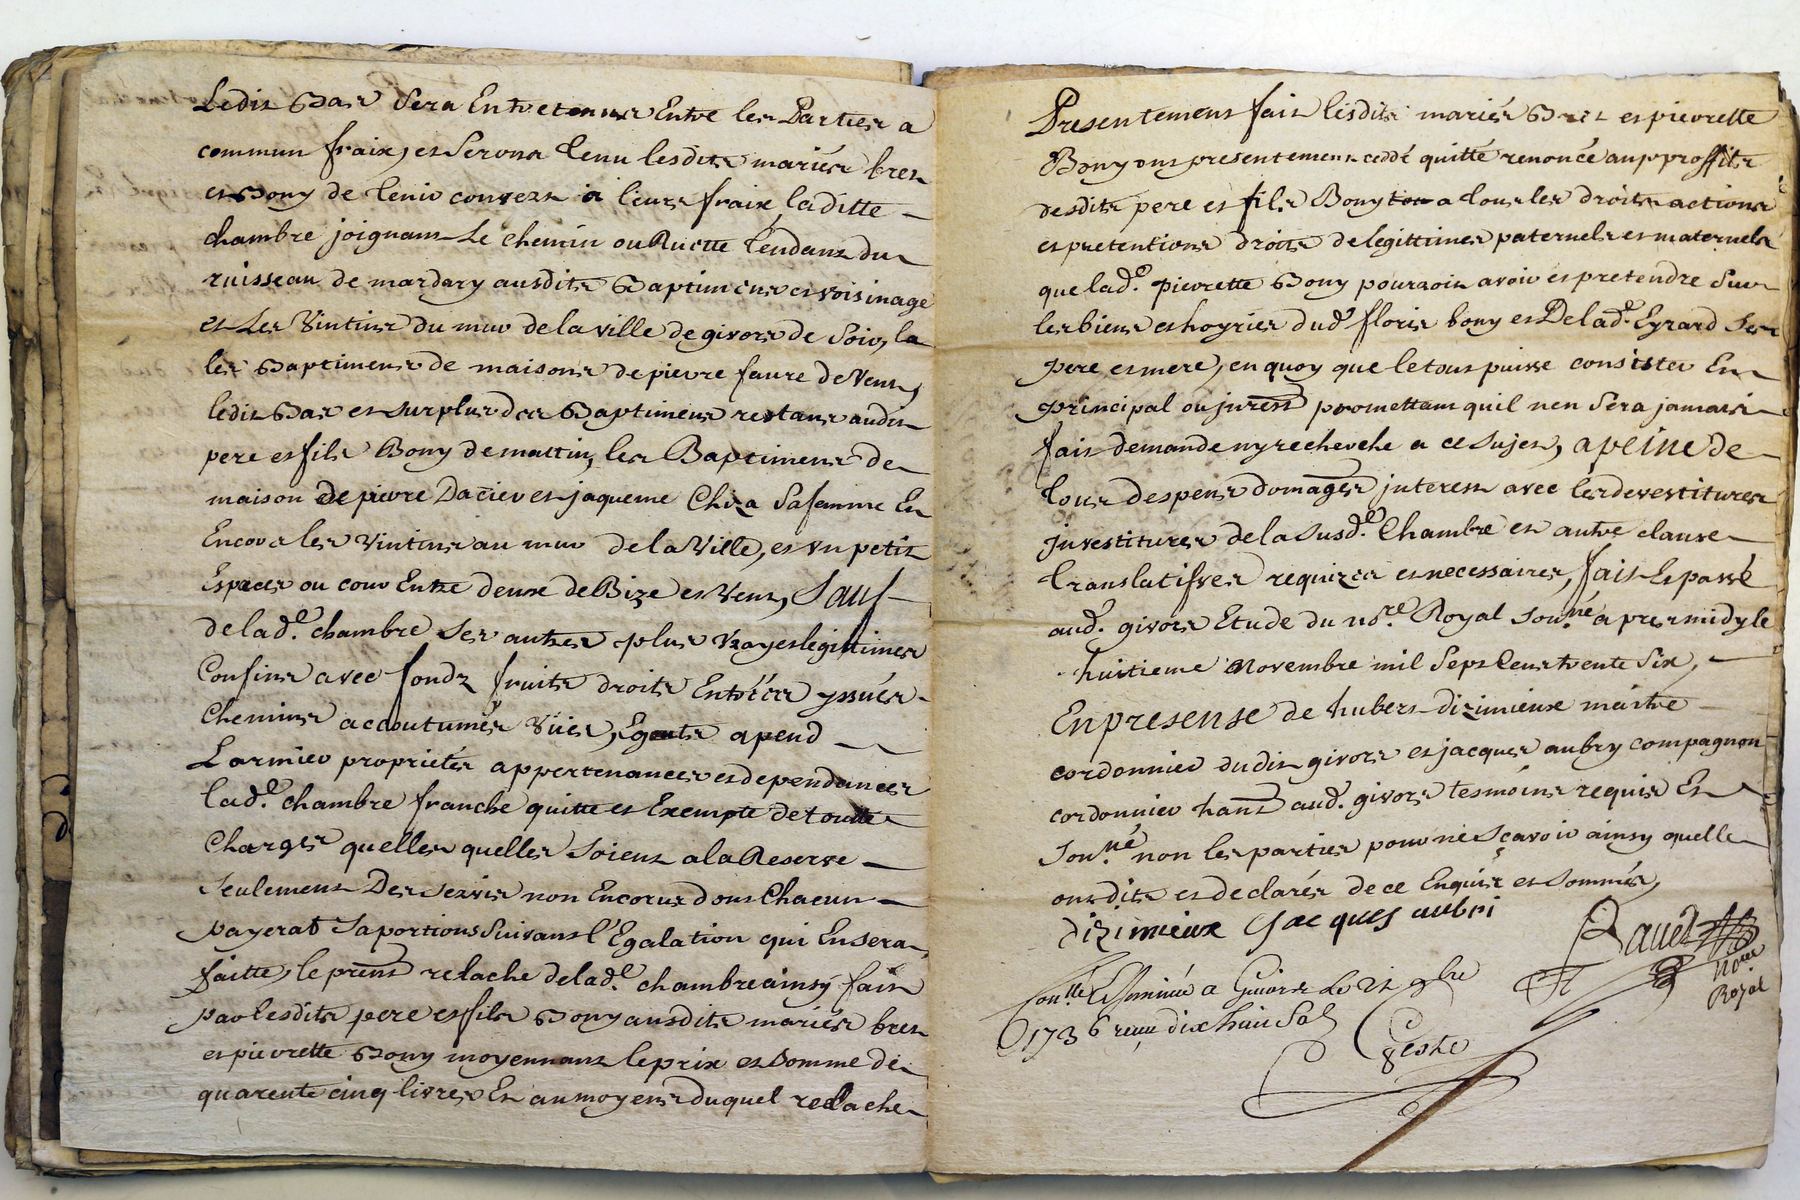 Ledit Bas Sera Entretenus Entre les Parties a
commun fraix, et Seront tenu lesdits mariés bret
et Bony de tenir convert à leurs fraix, laditte
chambre joignant Le chemin ou Ruette tendant du
ruisseau de mardary ausdits Baptiments et voisinage
et Les Vintins du mur de la ville de givors de Soir, la
les Baptiments de maisons de pierre faure de Vent,
ledit Bas et surplus des Baptiments restant audit
pere et fils Bony de mattin, les Baptiments de
maison de pierre Dacier et jaqueme Chiza Safamme En
Encore les Vintins au mur de la Ville, et un petit
Espaces ou cour Entre deux de Bize et Vent, Sauf
de lad.e chambre Ses autres plus vrayes legittimes
Confins avec fondz fruits droits Entréés yssües
chemins accoutumés Vües, Egouts apend
Larmier proprietés appertenances et dependances
lad.e chambre franche quitte et Exempte de toutte
Charges quelles quelles soient a la Reserve
Seulement Des servis non Encorus dont Chacun
payerat Sa portions Suivant l'Egalation qui En sera
faitte, le prent relache de lad.e chambre ainsy fait
par lesdits pere et fils Bony ausdits mariés bret
et pierrette Bony moyennant le prix et Somme de
quarente cinq livres Et au moyens duquel relache
Presentement fait lesdits mariés Bret et pierrette
Bony ont presentement ceddé quitté renoncé au pproffits
desdits pere et fils Bony a tous les droits actions
et pretentions droits de legittimes paternels et maternels
que lad.e pierrette Bony pourroit avoir et pretendre Sur
les biens et hoyries dud.t floris bony et De lad.e Eyrard Ses
pere et mere, en quoy que le tout puisse consister En
principal ou jnrest promettant quil nen Sera jamais
fait demande ny recherche a ce sujet, a peine de
tous despens domages jnterest avec les devestitures
jnvestitures de la susd.e Chambre et autre clause
translatifves requizes et necessaires, fait Et passé
aud.t givors Etude du no.re Royal Sou.né apres midy le
huitieme Novembre mil Sept Cent trente Six,
En presense de hubert dizimieux maitre
cordonnier dudit givors et jacques aubry compagnon
cordonnier hant aud.t givors tesmoins requis Et
Sou.né non les parties pour ne sçavoir ainsy quelle
ont dits et declarés de ce Enquis et Sommés,
dizimieux Jacques aubri
Ravet
No.re
Royal
Con.lle a Givors Le 21 9bre
1736 reçu dix huit Sols